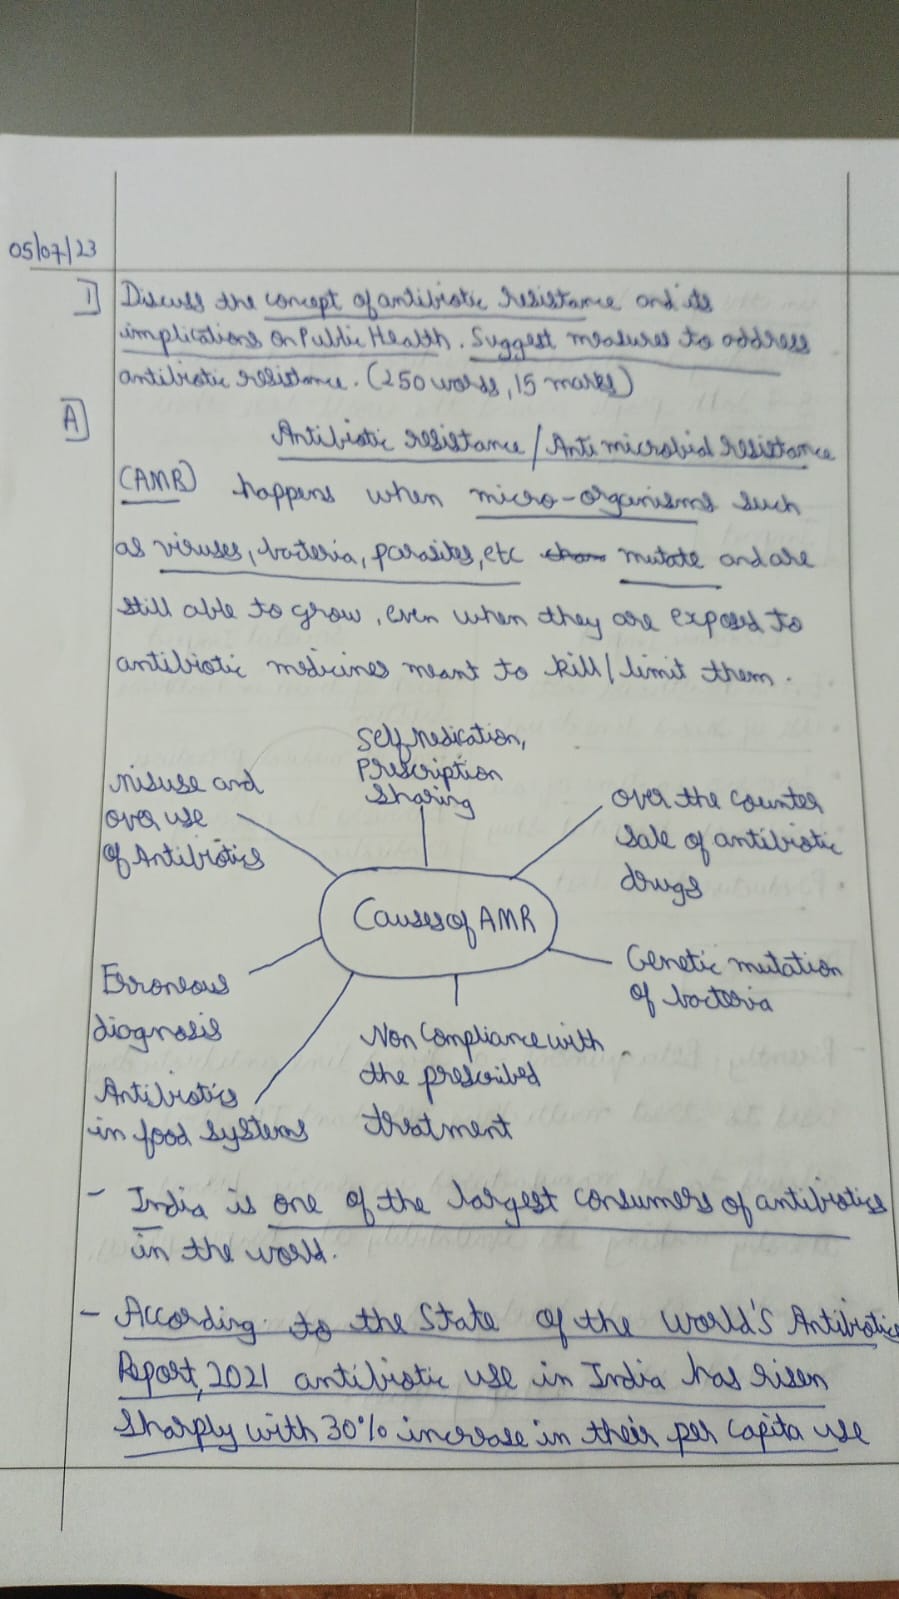 05/07/23
1] Discuss the concept of antibiotic resistance and its
implications on Public Health. Suggest measures to address
antibiotic resistance. (250 words, 15 marks)
A]
Antibiotic resistance / Anti microbial resistance
(AMR) happens when micro-organisms such
as viruses, bacteria, parasites, etc mutate and are
still able to grow, even when they are exposed to
antibiotic medicines meant to kill / limit them.
Self medication,
Prescription
Sharing
Misuse and
over use
of Antibiotics
over the counter
sale of antibiotic
drugs
Causes of AMR
Erroneous
diagnosis
Genetic mutation
of bacteria
Non Compliance with
the prescribed
treatment
Antibiotics
in food systems
- India is one of the largest consumers of antibiotics
in the world.
- According to the State of the World's Antibiotics
Report, 2021 antibiotic use in India has risen
sharply with 30% increase in their per capita use